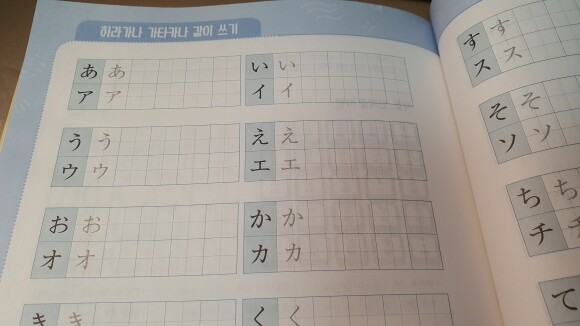 히라가나 가타카나 같이 쓰기
あ あ
ア ア
い い
イ イ
う う
ウ ウ
え え
エ エ
お お
オ オ
か か
カ カ
き き
く く
す す
ス ス
そ そ
ソ ソ
ち ち
チ チ
て